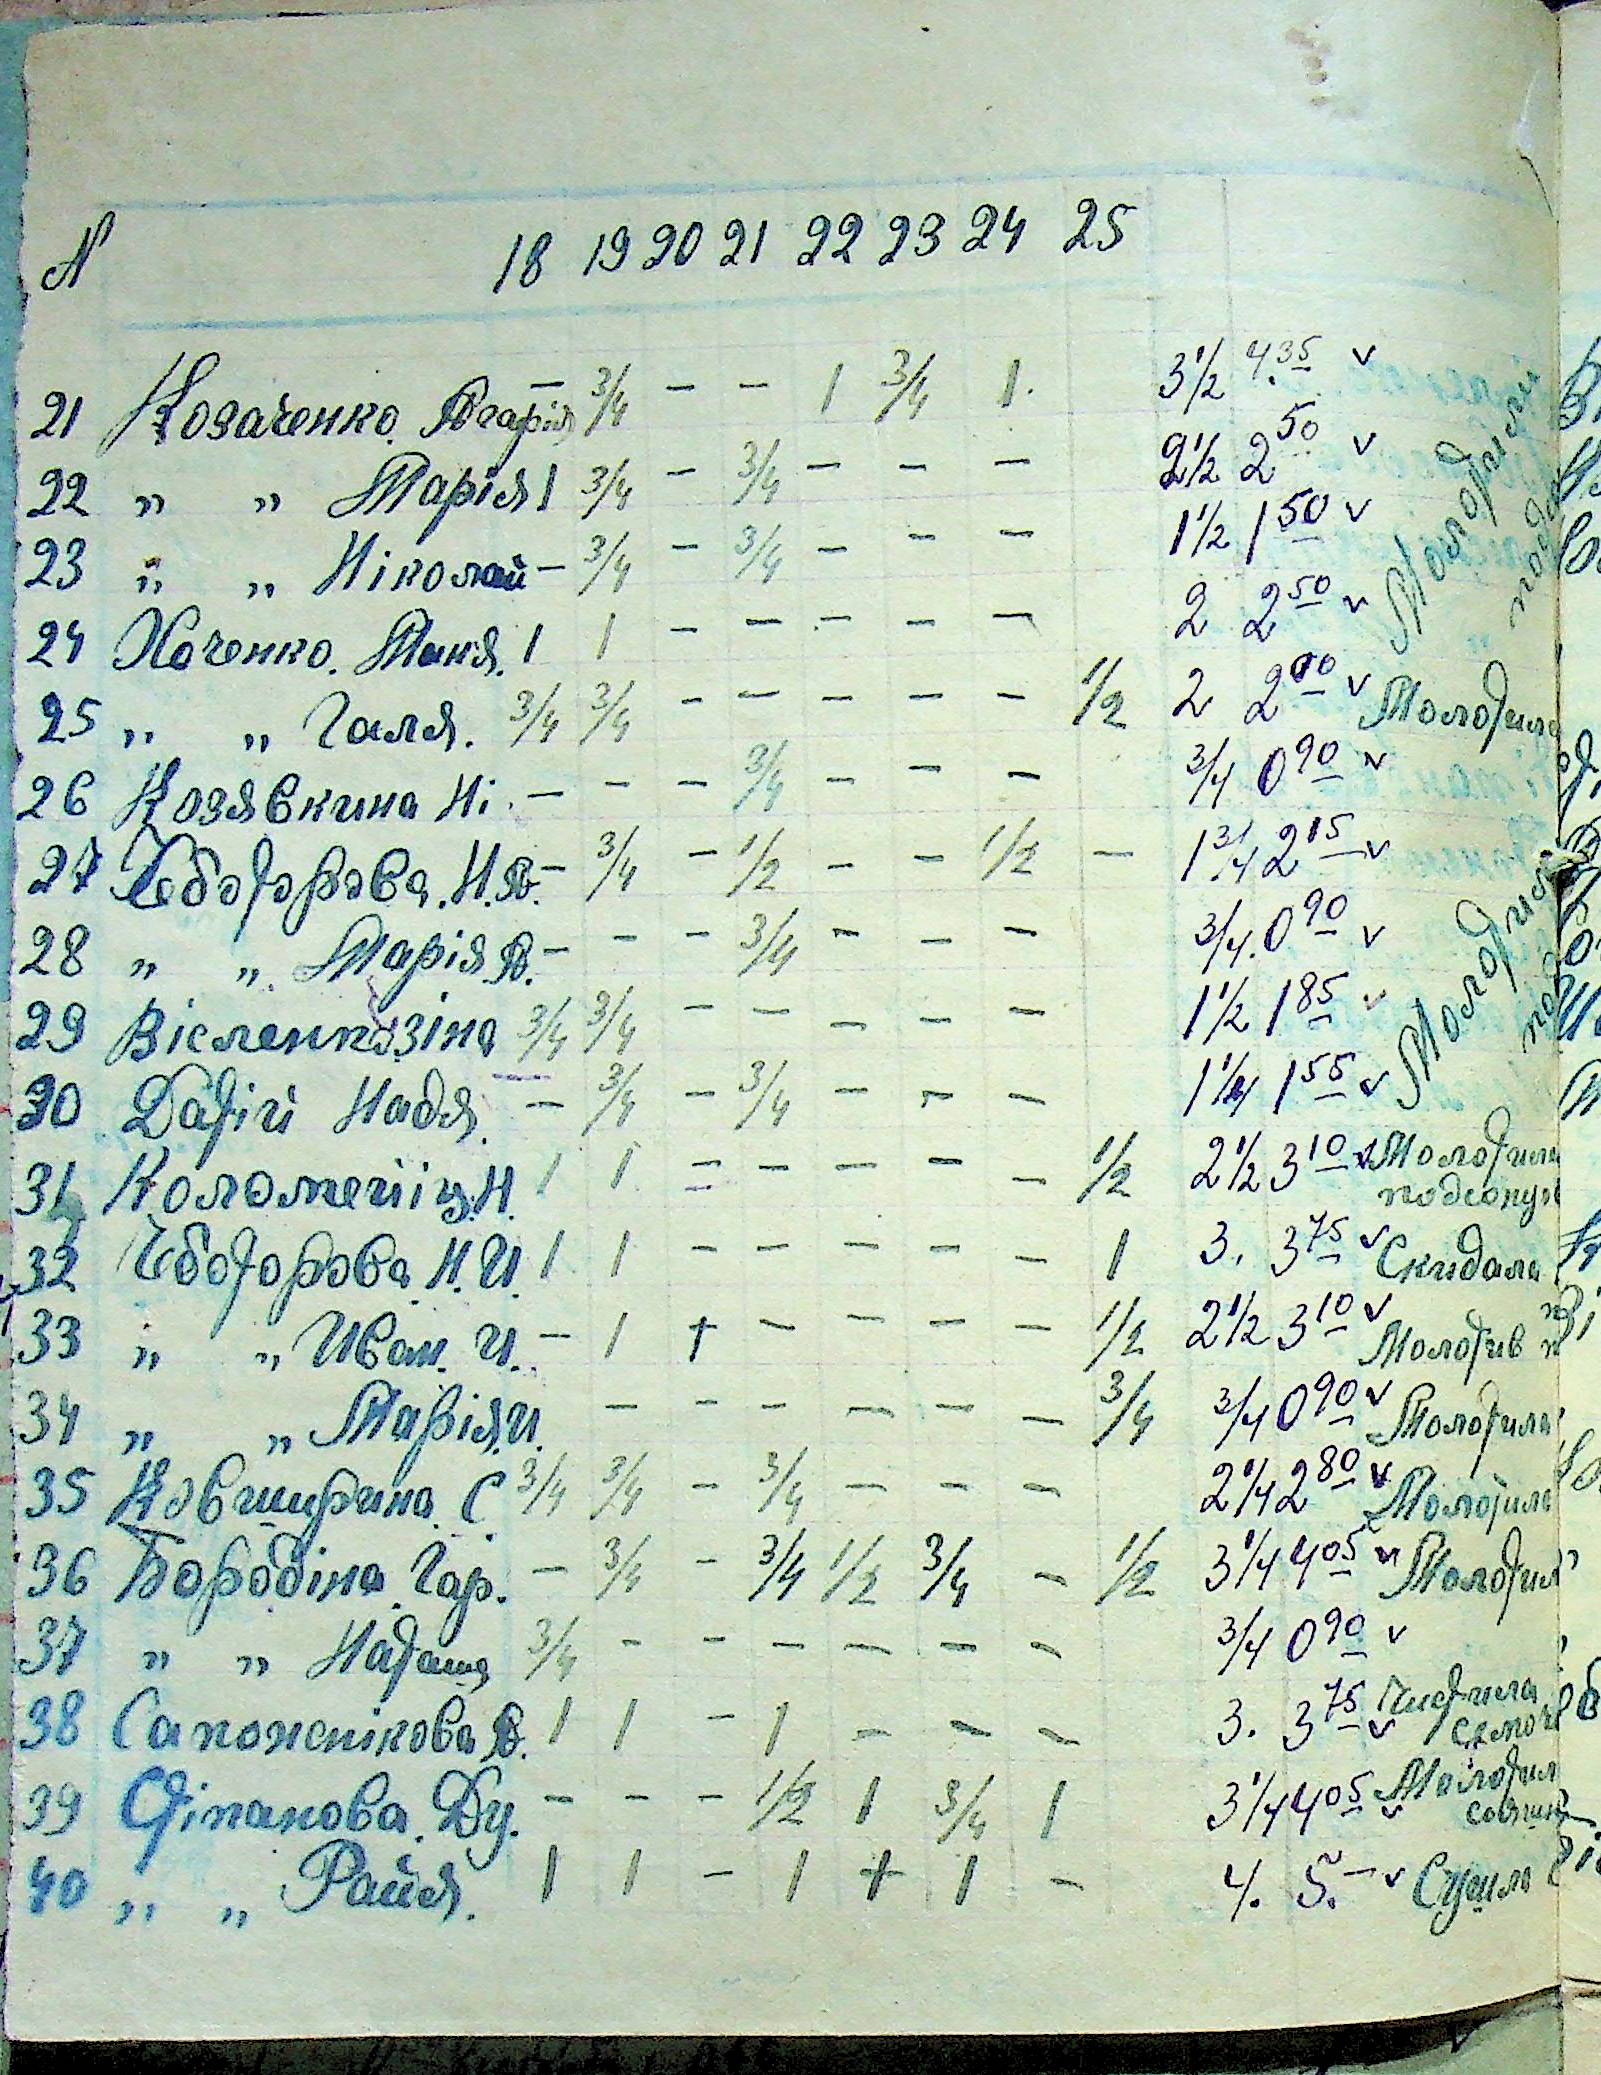 N 18 19 20 21 22 23 24 25
21 Козаченко. — 3/4 — — 1 3/4 1. 3 1/2 4.35 v
22 „ „ Марія 1 3/4 — 3/4 — — — 2 1/2 2 50 v
23 „ „ Ніколай — 3/4 — 3/4 — — — 1 1/2 1 50 v
24 Хоченко. Таня. 1 1 — — — — — 2 2 50 v
25 „ „ Галя. 3/4 3/4 — — — — — 1/2 2 2 00 v Молотила
26 Козявкина Ні. — — — 3/4 — — — 3/4 0 90 v
27 Чеботорова. Н. — 3/4 — 1/2 — — 1/2 — 1 3/4 2 15 v
28 „ „ Марія — — — 3/4 — — — 3/4. 0 90 v
29 Вісленко зіна 3/4 3/4 — — — — — 1 1/2 1 85 v
30 Надя. — 3/4 — 3/4 — — — 1 1/4 1 55 v
31 Коломеіец. Н. 1 1 = — — — — 1/2 2 1/2 3 10 v Молотили
32 Чеботорова. Н. И. 1 1 — — — — — 1 3. 3 75 v Скидала
33 „ „ Иван. И. — 1 + — — — — 1/2 2 1/2 3 10 v Молотив
34 „ „ Марія. И. — — — — — — 3/4 3/4 0 90 v Молотила
35 Ковширина С 3/4 3/4 — 3/4 — — — 2 1/4 2 80 v Молотила
36 Бородіна Гар. — 3/4 — 3/4 1/2 3/4 — 1/2 3 1/4 4 05 v Молотил
37 „ „ Наташа 3/4 — — — — — — 3/4 0 90 v
38 Сапожнікова 1 1 — 1 — — — 3. 3 75 v Чистила
39 Стіпанова. Ду. — — — 1/2 1 3/4 1 3 1/4 4 05 v Молотил
40 „ „ Раия. 1 1 — 1 + 1 — 4. 5. — v